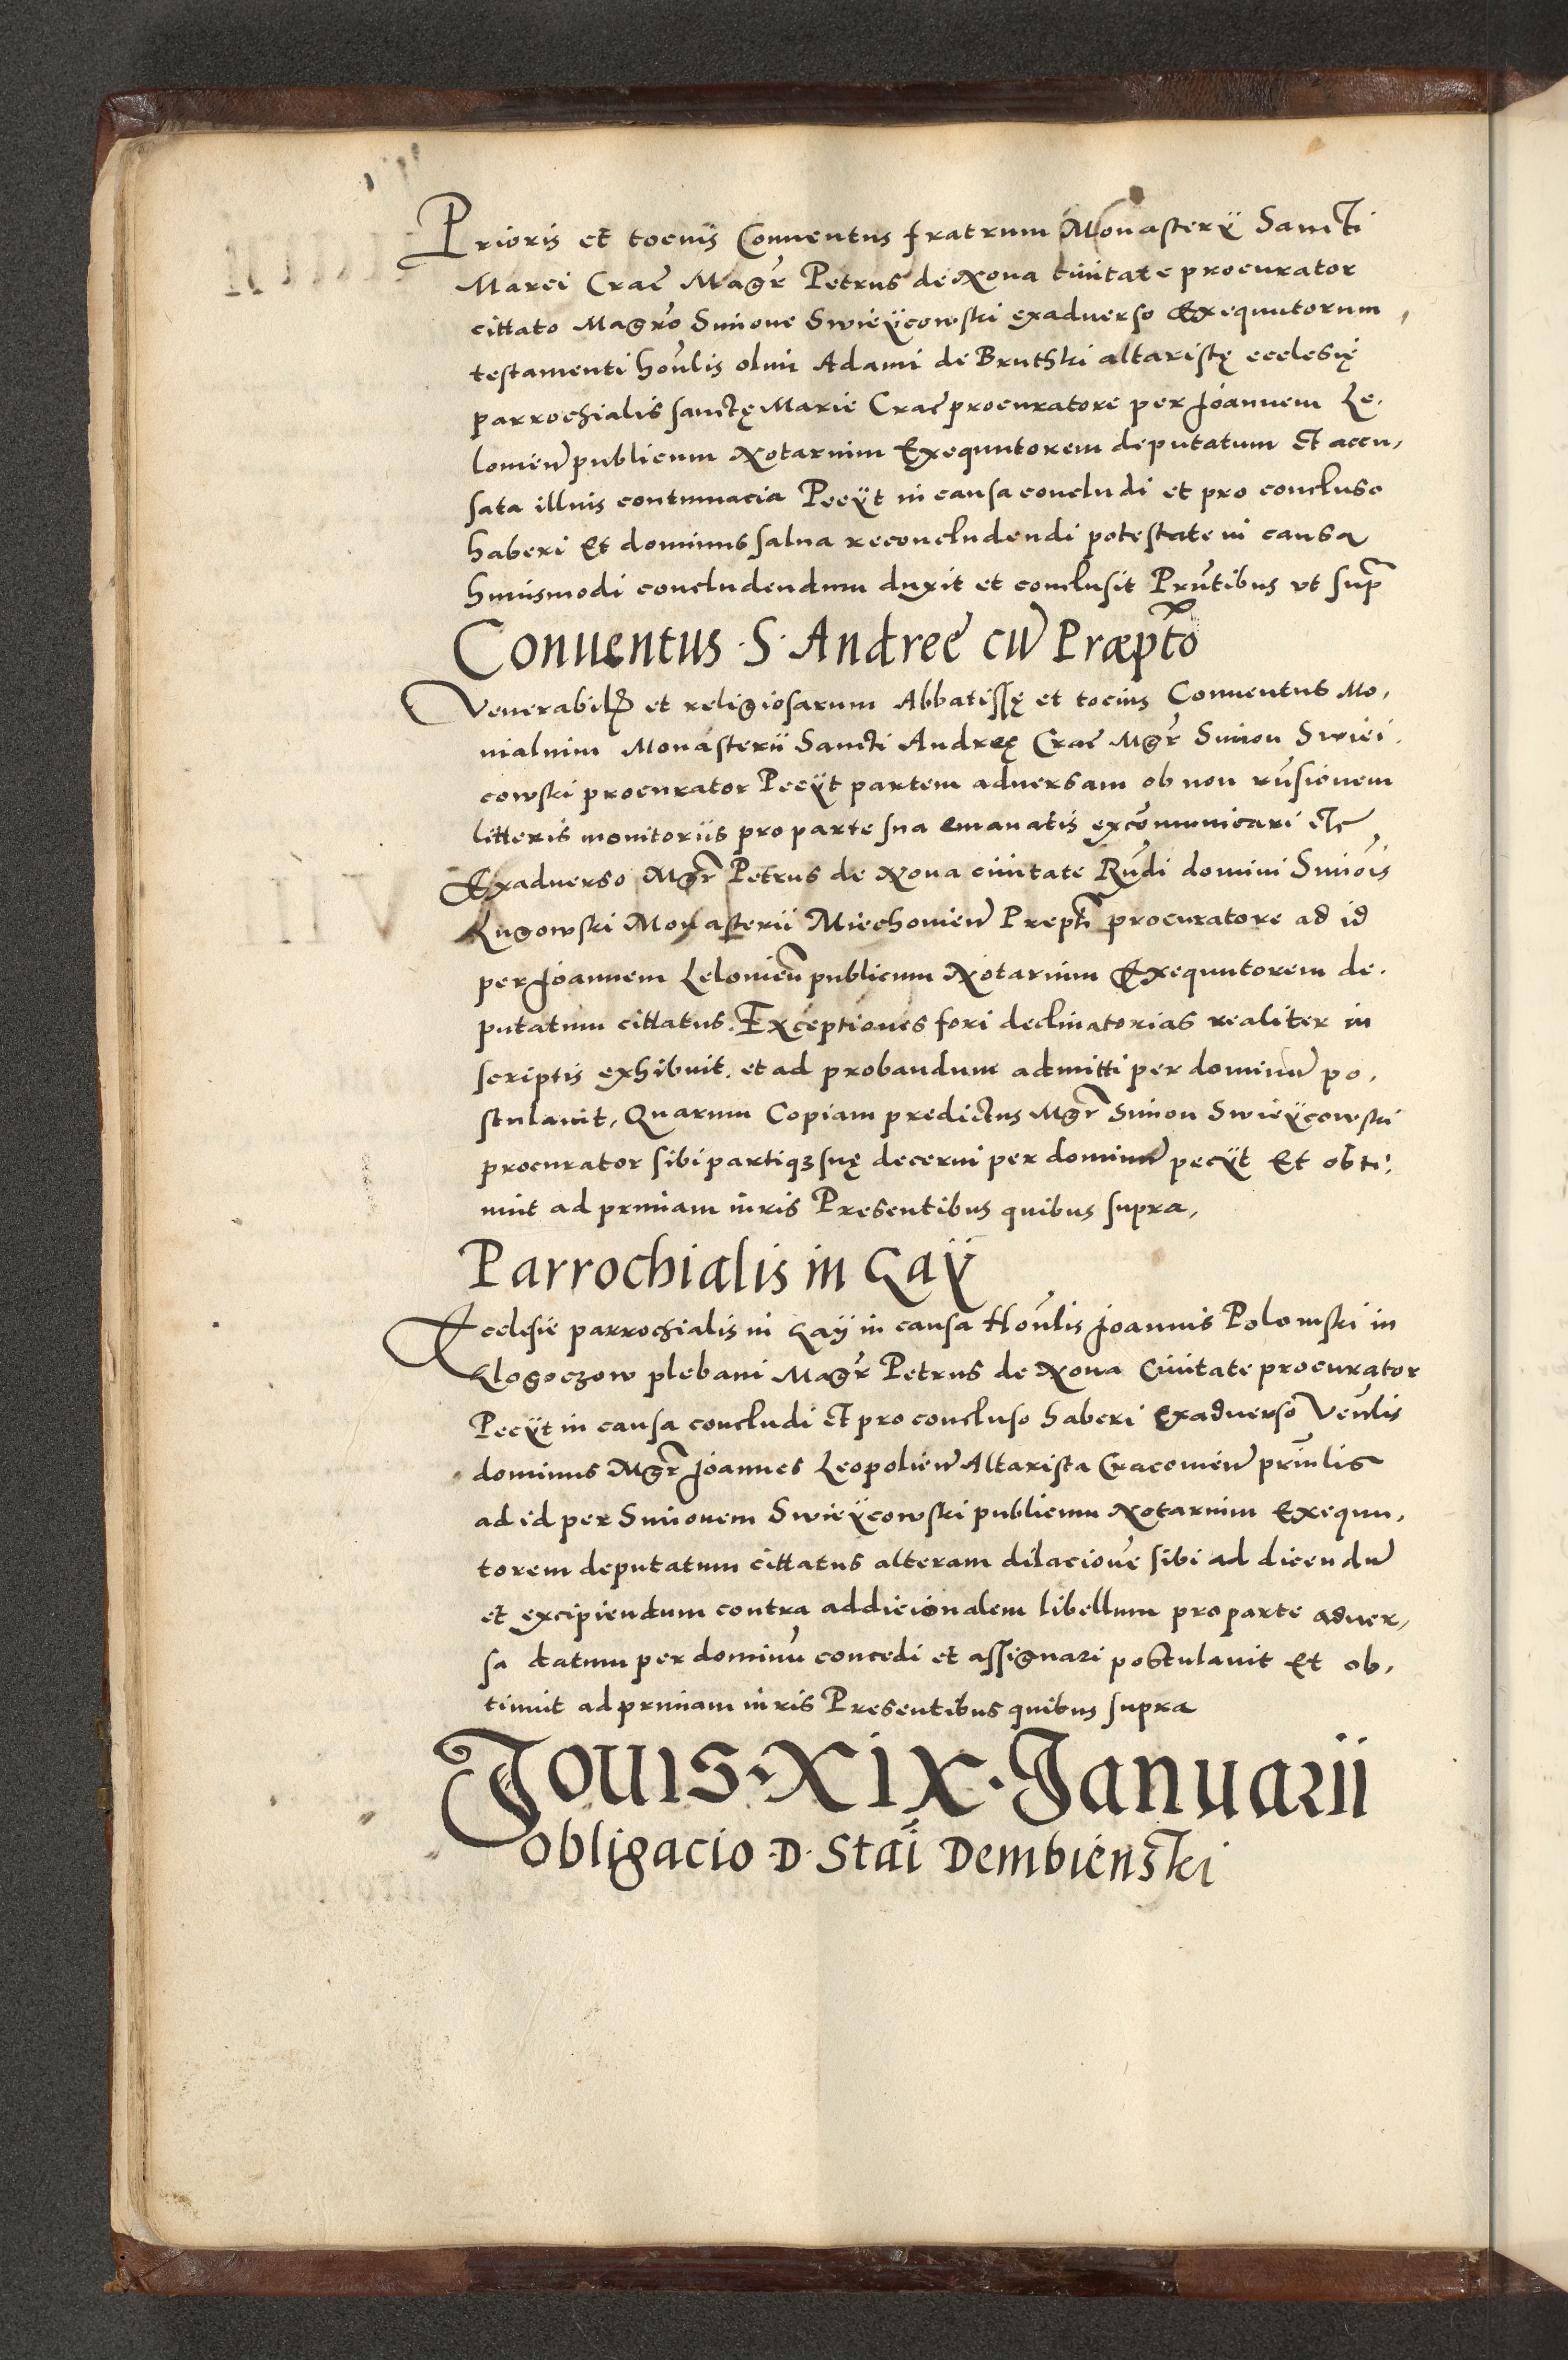 Prioris et tocius Conuentus fratrum Monasterÿ Sancti
Marci Crac̄ Magr̄ Petrus de Noua ciuitate procurator
cittato Magrō Simone Swieÿcowski exaduerso Exequutorum,
testamenti hon̄lis olim Adami de Bruthki altaristę ecclesię
parrochialis sanctę Marie Crac̄ procuratore per Joannem Le.
lowien̄ publicum Notarium Exequutorem deputatum Et accu,
sata illius contumacia Pecÿt in causa concludi et pro concluso
haberi Et dominus salua reconcludendi potestate in causa
huiusmodi concludendum duxit et conclusit Prn̄tibus vt sup̄
Conuentus · S · Andree cū Præpto
Venerabiliū et religiosarum Abbatissę et tocius Conuentus Mo,
nialium Monasterii Sancti Andreę Crac̄ Mgr̄ Simon Swiei.
cowski procurator Pecÿt partem aduersam ob non rn̄sionem
litteris monitoriis pro parte sua emanatis excōmunicari etc̄
Exaduerso Mgr̄ Petrus de Noua ciuitate Rn̄di domini Simōis
Lugowski Monasterii Miechouien̄ Prepti procuratore ad id
per Joannem Lelouien̄ publicum Notarium Exequutorem de.
putatum cittatus. Exceptiones fori declinatorias realiter in
scriptis exhibuit. et ad probandum admitti per dominū po,
stulauit, Quarum Copiam predictus Mgr̄ Simon Swieÿcowski
procurator sibi partiqꝫ suę decerni per dominū pecÿt Et obti:
nuit ad primam iuris Presentibus quibus supra,
Parrochialis in Gaÿ
Ecclesie parrochialis in Gaÿ in causa Hon̄lis Joannis Polomski in
Glogoczow plebani Magr̄ Petrus de Noua Ciuitate procurator
Pecÿt in causa concludi Et pro concluso haberi Exaduerso Ven̄lis
dominus Mgr̄ Joannes Leopolien̄ Altarista Cracouien̄ prin̄lis
ad id per Simonem Swieÿcowski publicum Notarium Exequu,
torem deputatum cittatus alteram dilacionē sibi ad dicendū
et excipiendum contra addicionalem libellum pro parte aduer,
sa datum per dominū concedi et assignari postulauit Et ob,
tinuit ad primam iuris Presentibus quibus supra
Jouis · XIX · Januarii
Obligacio · D · Stāi Dembienski